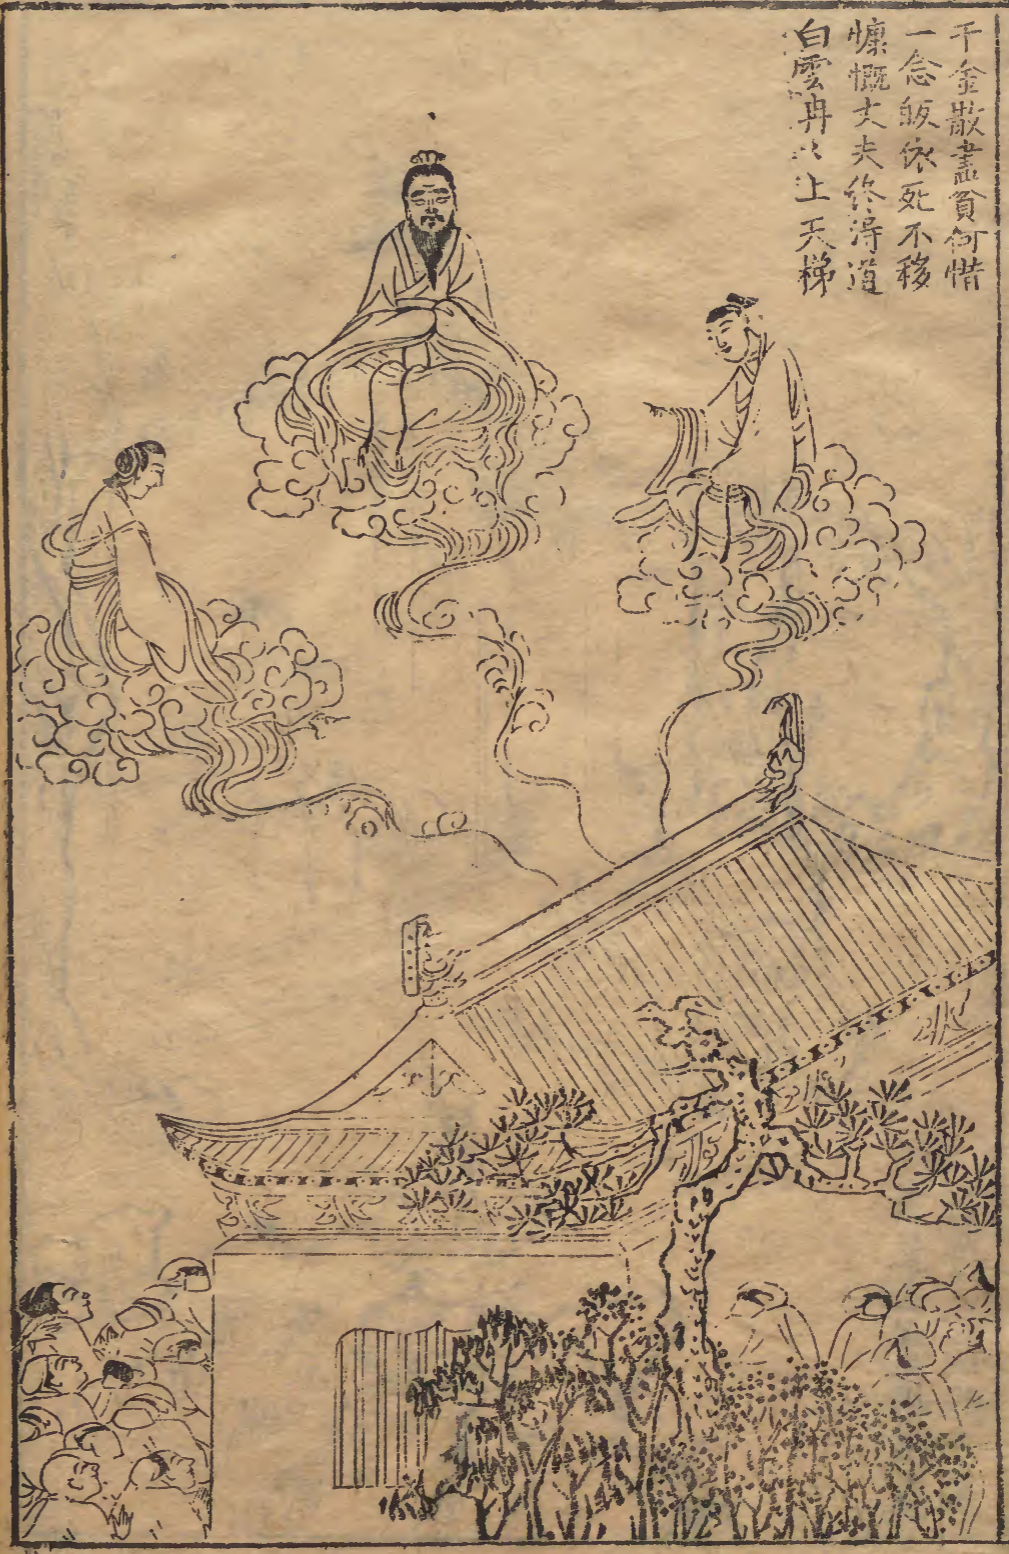 千金散盡貧何惜
一念皈依死不移
慷慨丈夫終得道
白雲冉々上天梯